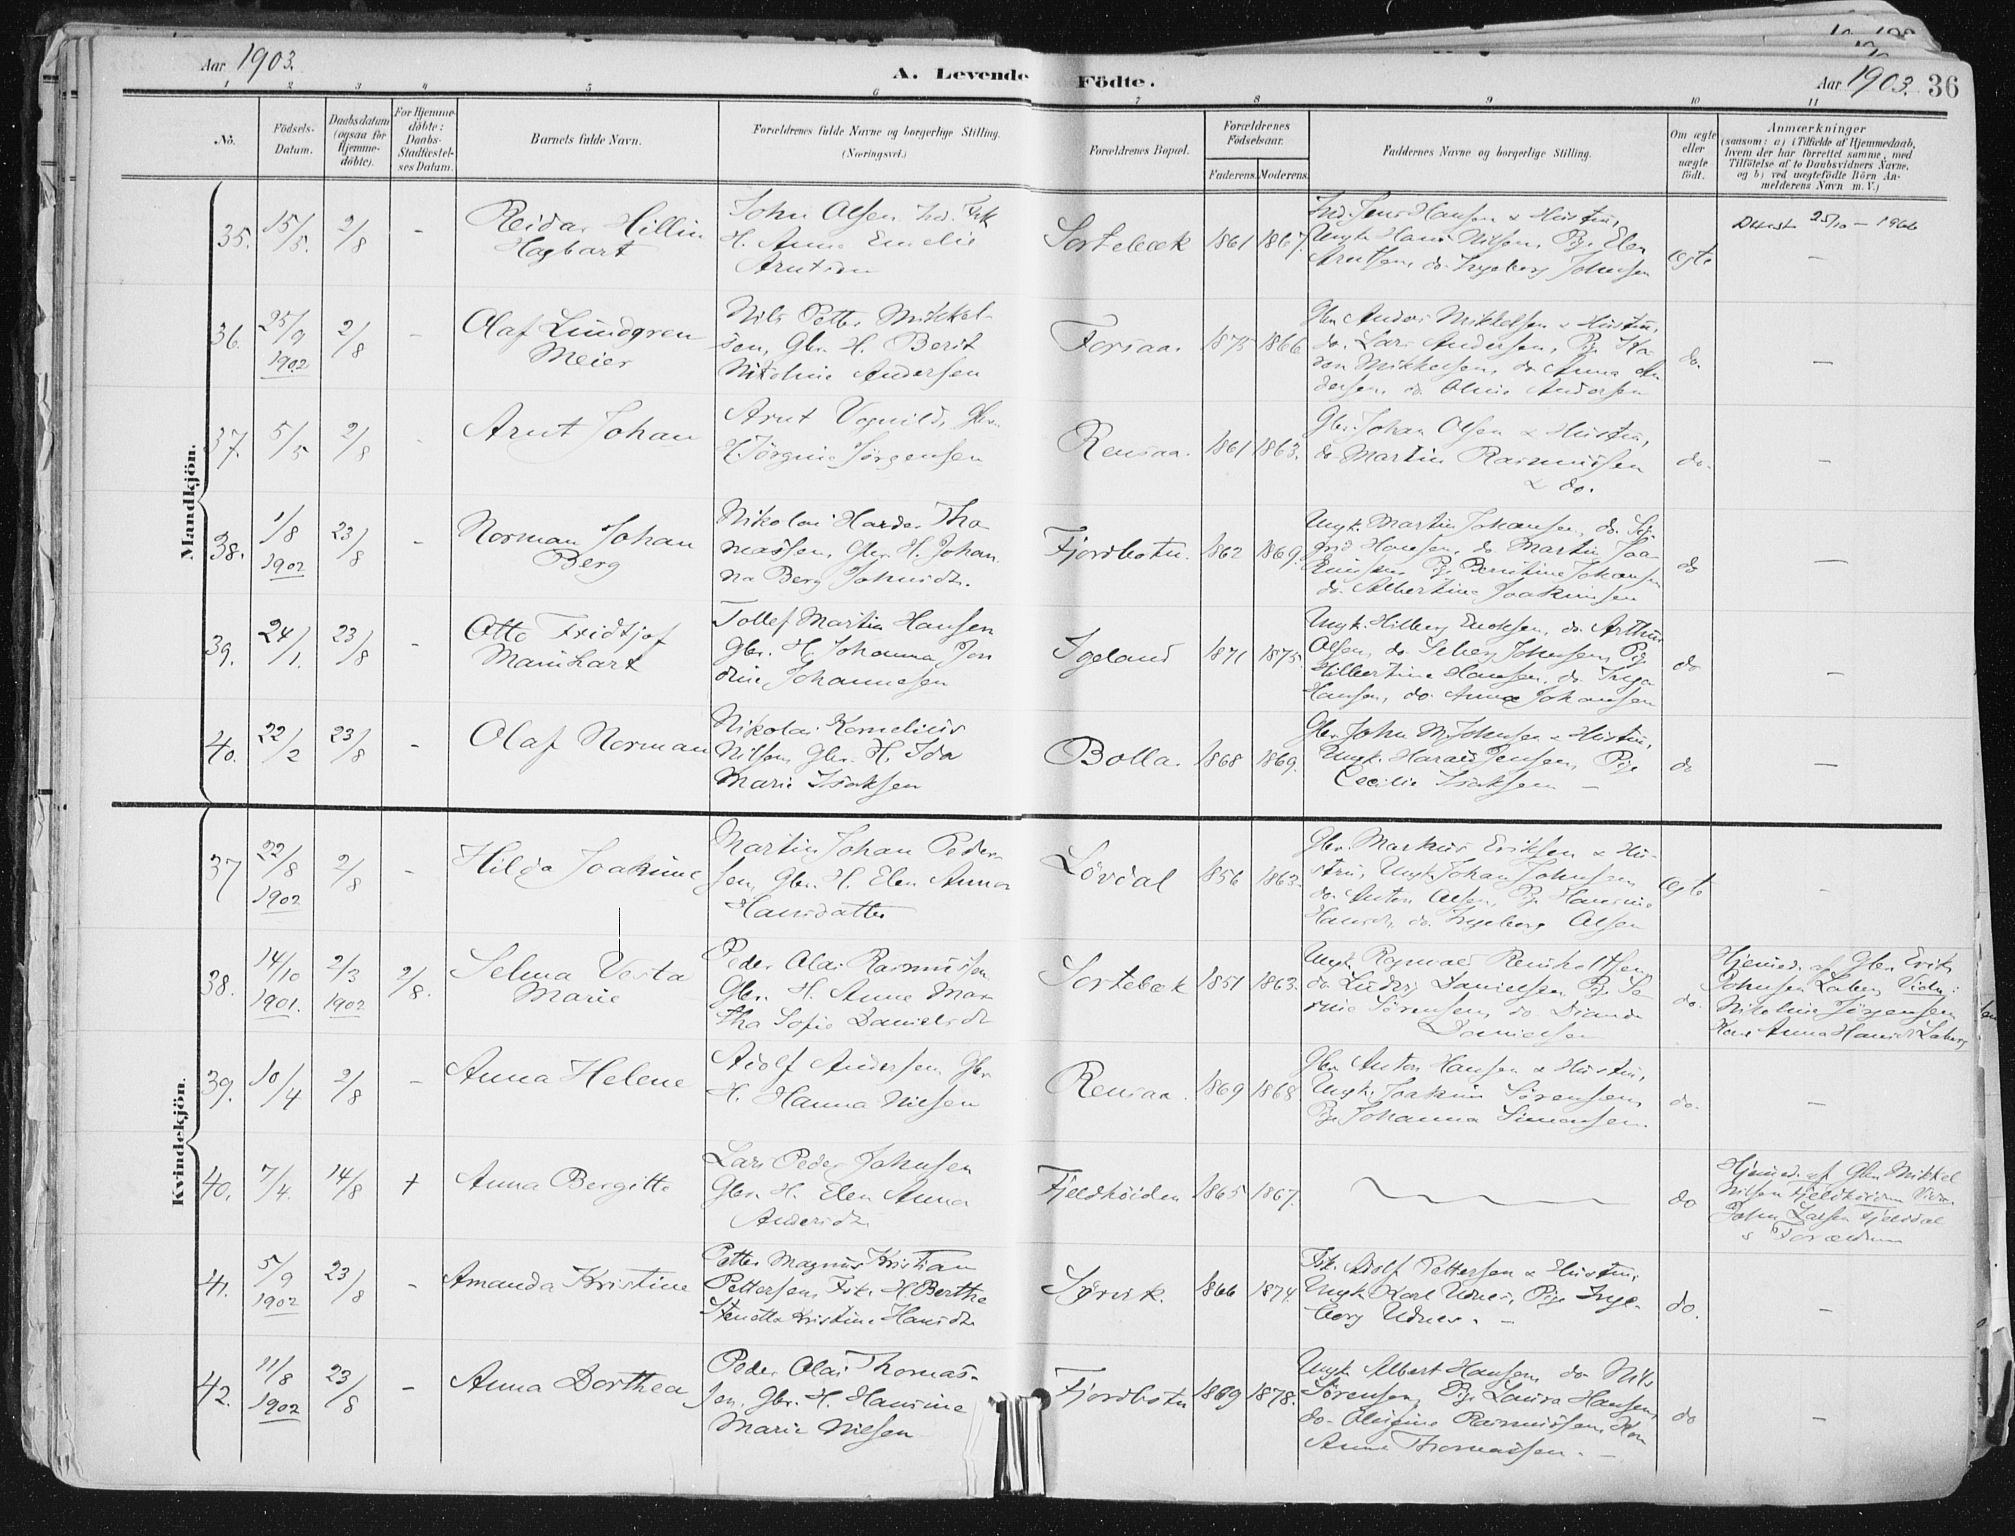 Aar 1903.
A. Levende Födte.
Aar 1903. 36
1 2 3 4 5 6 7 8 9 10 11
No.
Födsels-
Datum.
Daabsdatum
(ogsaa for
Hjemme-
döbte).
For Hjemme-
döbte:
Daabs-
Stadfæstel-
ses Datum.
Barnets fulde Navn.
Forældrenes fulde Navne og borgerlige Stilling.
(Næringsvei.)
Forældrenes Bopæl.
Forældrenes
Födselsaar.
Faderens. Moderens.
Faddernes Navne og borgerlige Stilling.
Om ægte
eller
uægte
födt.
Anmærkninger
(saasom: a) i Tilfælde af Hjemmedaab,
hvem der har forrettet samme, med
Tilföielse af to Daabsvidners Navne,
og b) ved uægtefödte Börn An-
melderens Navn m. V.)
Mandkjön.
35. 15/5. 2/8 -
Reidar Hillin
Hagbart
John Olsen Ind. Fsk
H. Anna Emelie
Arntsen
Sortebæk 1861 1867.
Ind. Jens Hansen & Hustru,
Ungk. Hans Nilsen, Pige Elen
Arntsen, do. Ingeborg Johnsen
ægte
25/10 - 1966
-
36. 25/9 1902 2/8 -
Olaf Lundgren
Meier
Nils Petter Mikkel-
sen, Gbr. H. Berit
Nikoline Andersen
Forsaa. 1875 1866
Gbr. Anders Mikkelsen & Hustru,
do. Lars Andersen, Pige Ka-
ren Mikkelsen, do Anna An
dersen, do. Andersen
do.
-
37. 5/5 2/8
Arnt Johan
Arnt Vognild, Gbr.
H. Jørgine Jørgensen
Rensaa. 1861 1863.
Gbr. Johan Olsen & Hustru,
do. Martin Rasmussen
& do.
do.
-
38. 1/8 1902 23/8 -
Norman Johan
Berg
Nikolai Harder Tho
massen, Gbr. H. Johan
na Berg Johnsdtr.
Fjordbotn. 1862 1869.
Ungk. Martin Johansen, do. Si-
grid Hansen, do Martin Joa-
kimsen Pige Johansen
do. Albertine Joakimsen
do
-
39. 24/1. 23/8 -
Otto Fridtjof
Mainhart
Tollef Martin Hansen
Gbr. H. Johanna Jon
dine Johannesen
Igeland 1871 1875.
Ungk. Hilberg Enoksen, do. Arthur
Olsen, do Johnsen, Pige
Hilbertine Hansen, do. Inga
Hansen, do. Anna Johansen
do
-
40. 22/2 23/8 -
Olaf Norman
Nikolai Kornelius
Nilsen, Gbr. H. Ida
Marie Isaksen
Bolla. 1868 1869.
Gbr. John M. Johnsen & Hustru,
Ungk. Harald Jensen, Pige
Cecilie Isaksen -
do
-
Kvindekjön.
37 22/8 1902 2/8 -
Hilda Joakime
Martin Johan Peder-
sen, Gbr. H. Elen Anna
Hansdatter
Løvdal 1856 1863.
Gbr. Markus Eriksen & Hu-
stru, Ungk. Johan Johnsen,
do. Anton Olsen, Pige
do. Ingeborg Olsen
ægte
-
38. 14/10 1901. 2/3 1902 2/8.
Selma Vesta
Marie
Peder Olai Rasmussen
Gbr. H. Anne Mar
tha Sofie Danielsdtr
Sortebæk 1851 1863.
Ungk. Ragnvald Reinholtsen,
do. Ludvig Danielsen Pige
Sørensen, do.
Danielsen
do.
Hjemmed. af Gbr. Erik
Johnsen Laberg Vidn:
Nikoline Jørgensen
Kone Anna Hansdtr. Laberg
39. 10/4 2/8 -
Anna Helene
Adolf Andersen, Gbr.
H. Hanna Nilsen
Rensaa. 1869 1868
Gbr. Anton Hansen & Hustru,
Ungk. Joakim Sørensen,
Pige Johanna Simonsen.
do.
-
40. 7/4. 14/8 +
Anna Bergitte
Lars Peder Johnsen
Gbr. H. Elen Anna
Andersdtr.
Fjeldhöiden 1865 1867.
do
Hjemmed. af Gbr. Mikkel
Nilsen Fjeldhöiden Vidn.
John Larsen Fjelddal
& Forældrene
41. 5/9 1902 23/8 -
Amanda Kristine
Petter Magnus Kristian
Pettersen, Fisk. H. Berthe
Kristine Hansdtr
Sørvik 1866 1874.
Fisk. Adolf Pettersen & Hustru,
Ungk. Karl Udnes, Pige Inge-
borg Udnes. -
do.
-
42. 11/8 1902 23/8 -
Anna Dorthea
Peder Olai Thomas-
sen, Gbr. H. Hansine
Marie Nilsen
Fjordbotn 1869 1878.
Ungk. Albert Hansen, do Nils
Sørensen, Pige Laura Hansen,
do. Rasmussen, Kone
Anna Thomassen. -
do
-